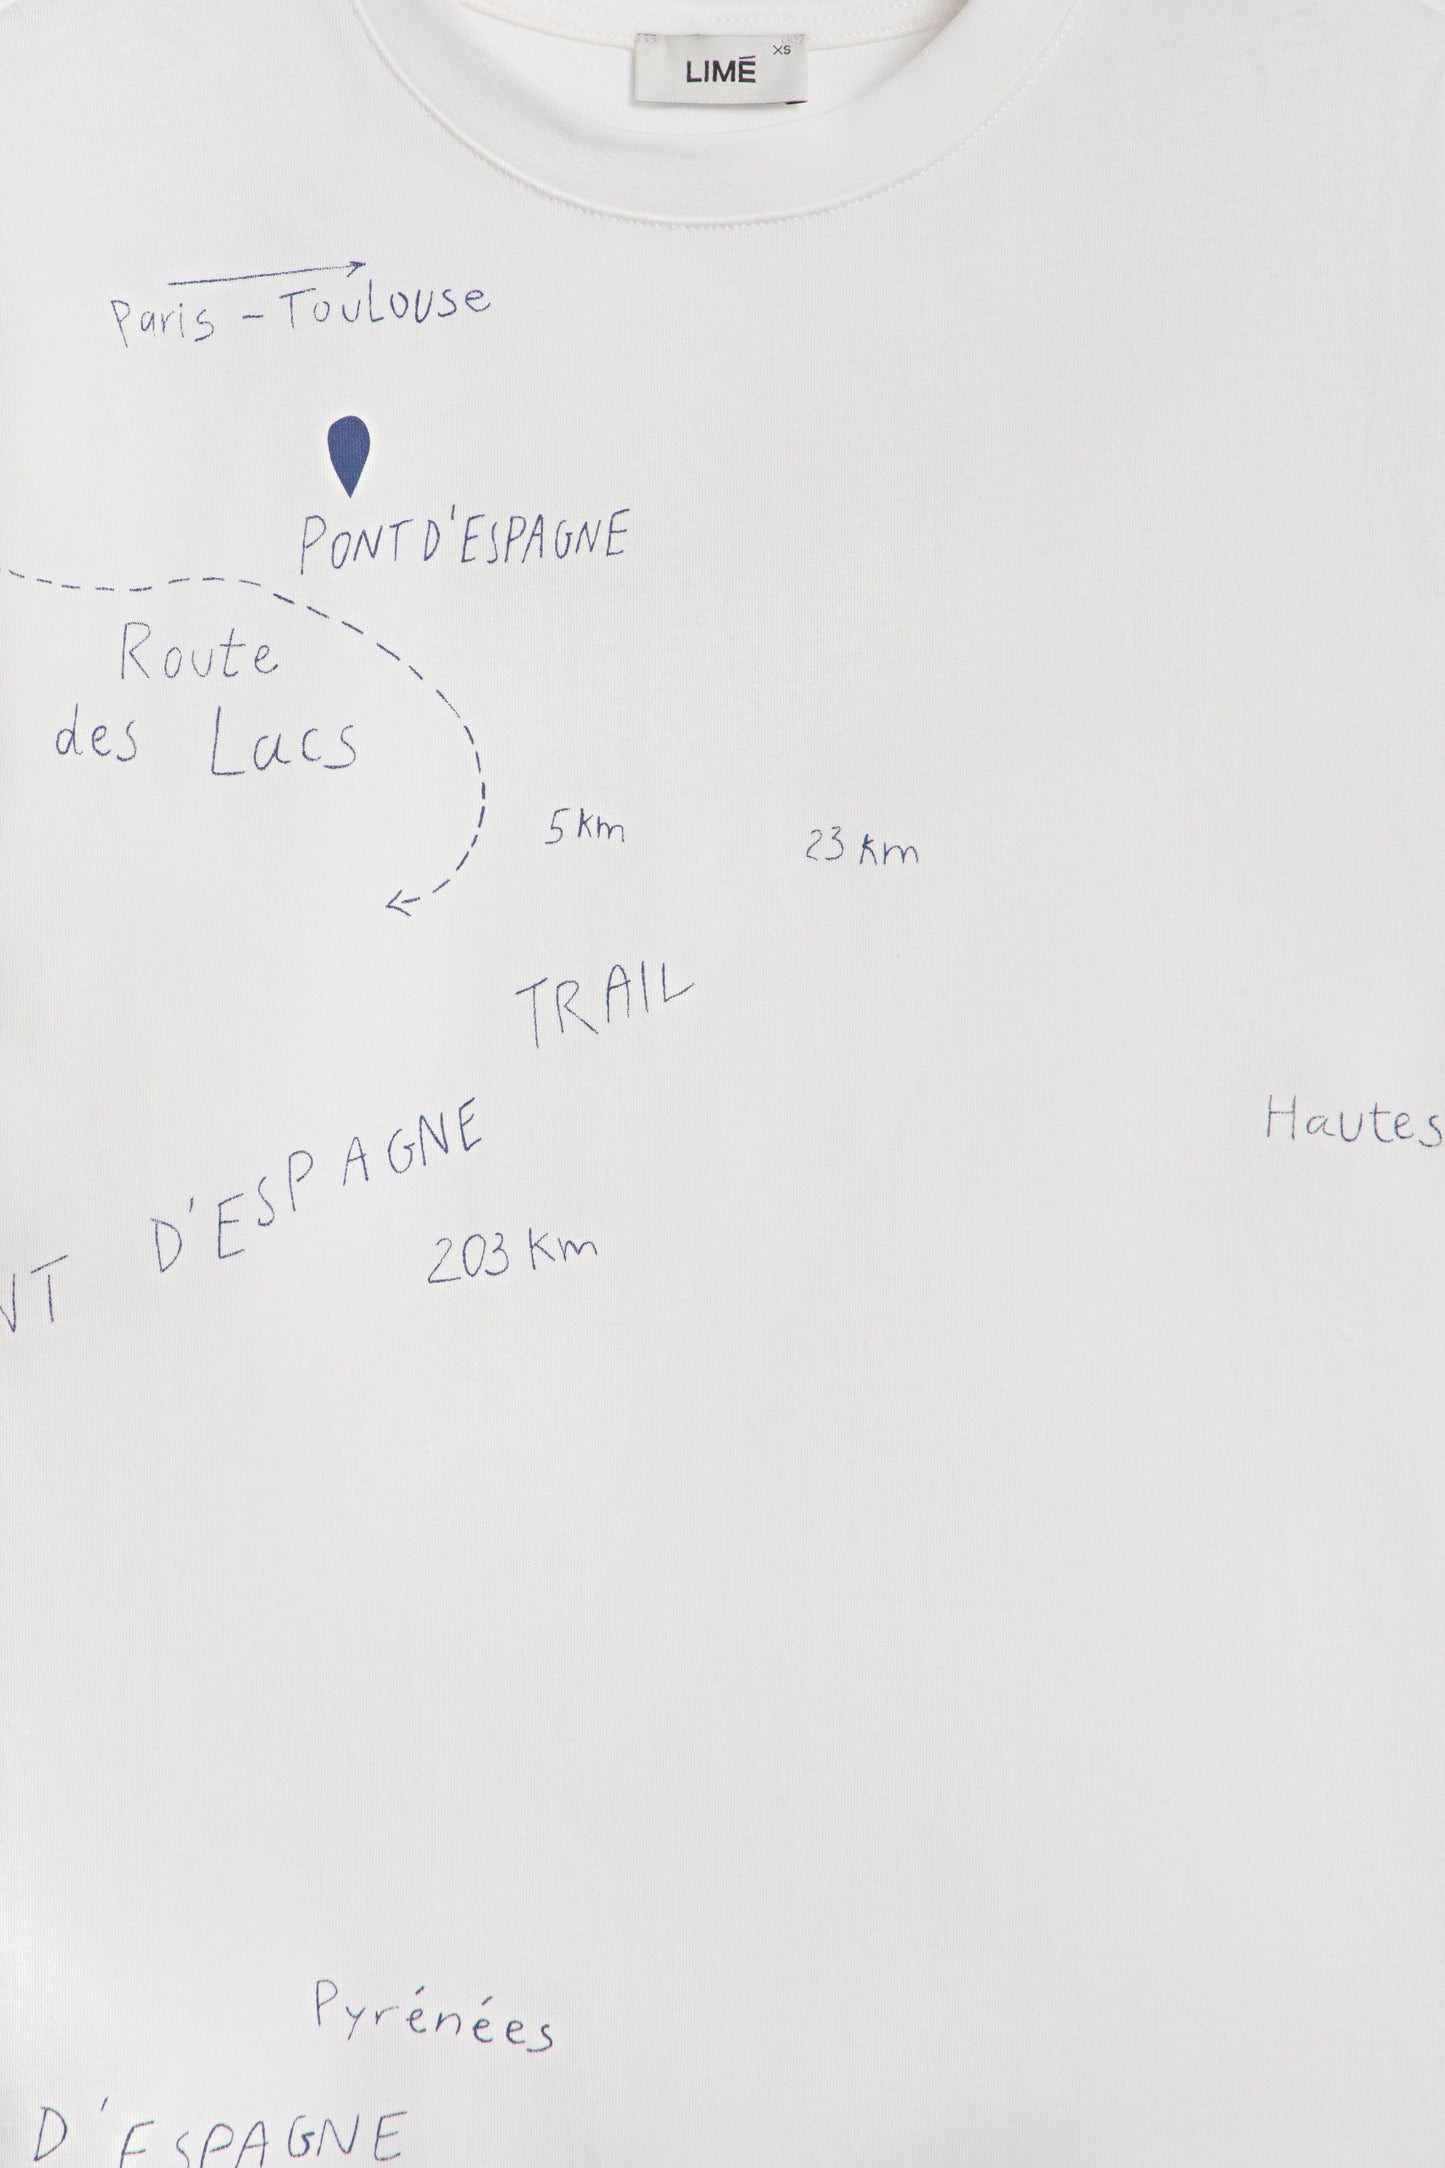 LIMÉ XS
Paris - Toulouse
PONT D'ESPAGNE
Route
des Lacs
5 km
23 km
TRAIL
Hautes
NT D'ESPAGNE
203 km
Pyrénées
D'ESPAGNE